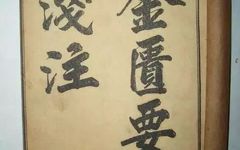 金匱要
淺注